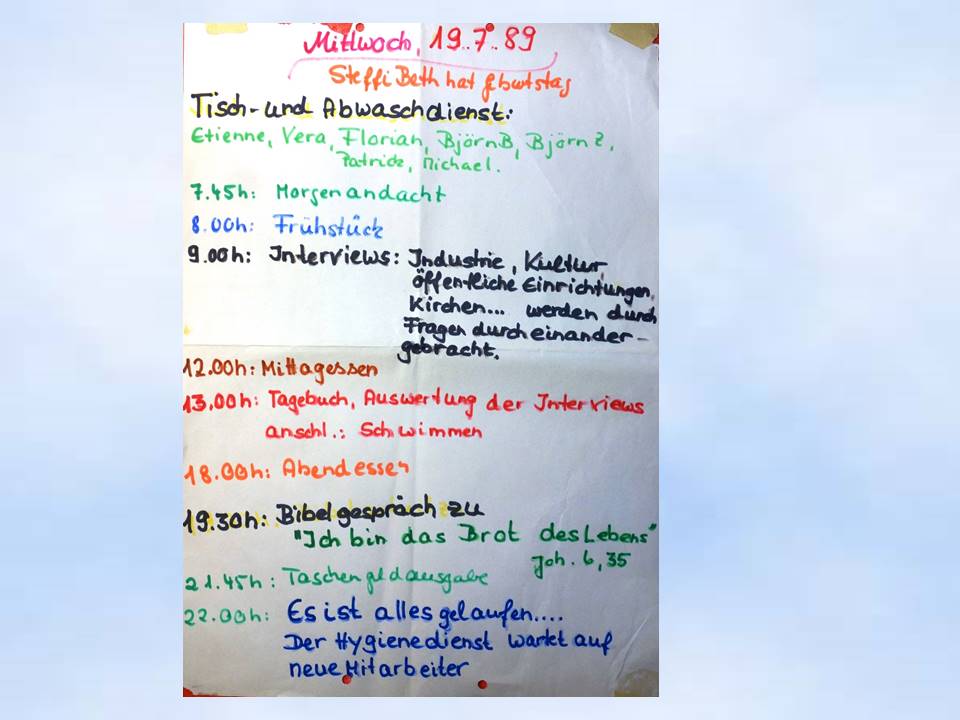 Mittwoch, 19.7.89
Steffi Beth hat Gburtstag
Tisch- und Abwaschdienst:
Etienne, Vera, Florian, Björn B, Björn Z,
Patrick, Michael.
7.45h: Morgenandacht
8.00h: Frühstück
9.00h: Interviews: Industrie, Kultur,
öffentliche Einrichtungen,
Kirchen... werden durch
Fragen durcheinander-
gebracht.
12.00h: Mittagessen
13.00h: Tagebuch, Auswertung der Interviews
anschl.: Schwimmen
18.00h: Abendessen
19.30h: Bibelgespräch zu
"Ich bin das Brot des Lebens"
Joh. 6,35
21.45h: Taschengeldausgabe
22.00h: Es ist alles gelaufen....
Der Hygienedienst wartet auf
neue Mitarbeiter